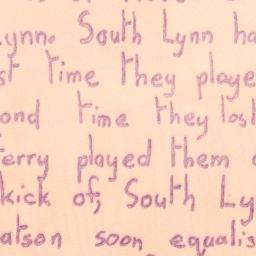 Lynn. South Lynn ha
st time they playe
ond time they los
erry played them
kick of, South Ly
atson soon equalis